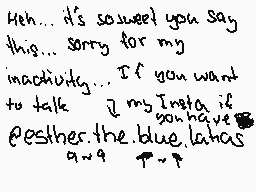 Heh... it's so sweet you say
this... sorry for my
inactivity... If you want
to talk my Insta if
you have
@esther.the.blue.lahas
q~q T~T